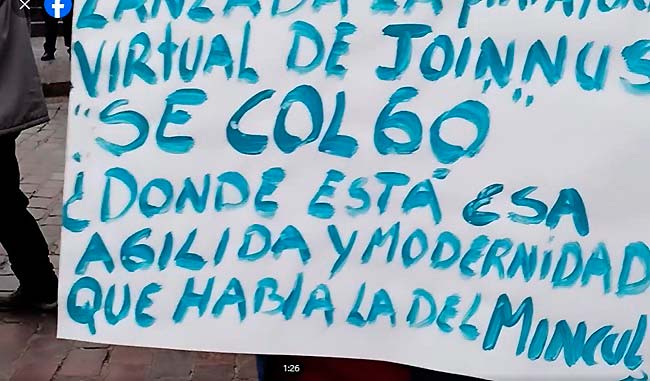 LANZADA LA
VIRTUAL DE JOINNUS
"SE COLGO"
¿DONDE ESTÁ ESA
AGILIDA Y MODERNIDAD
QUE HABIA LA DEL MINCUL
1:26